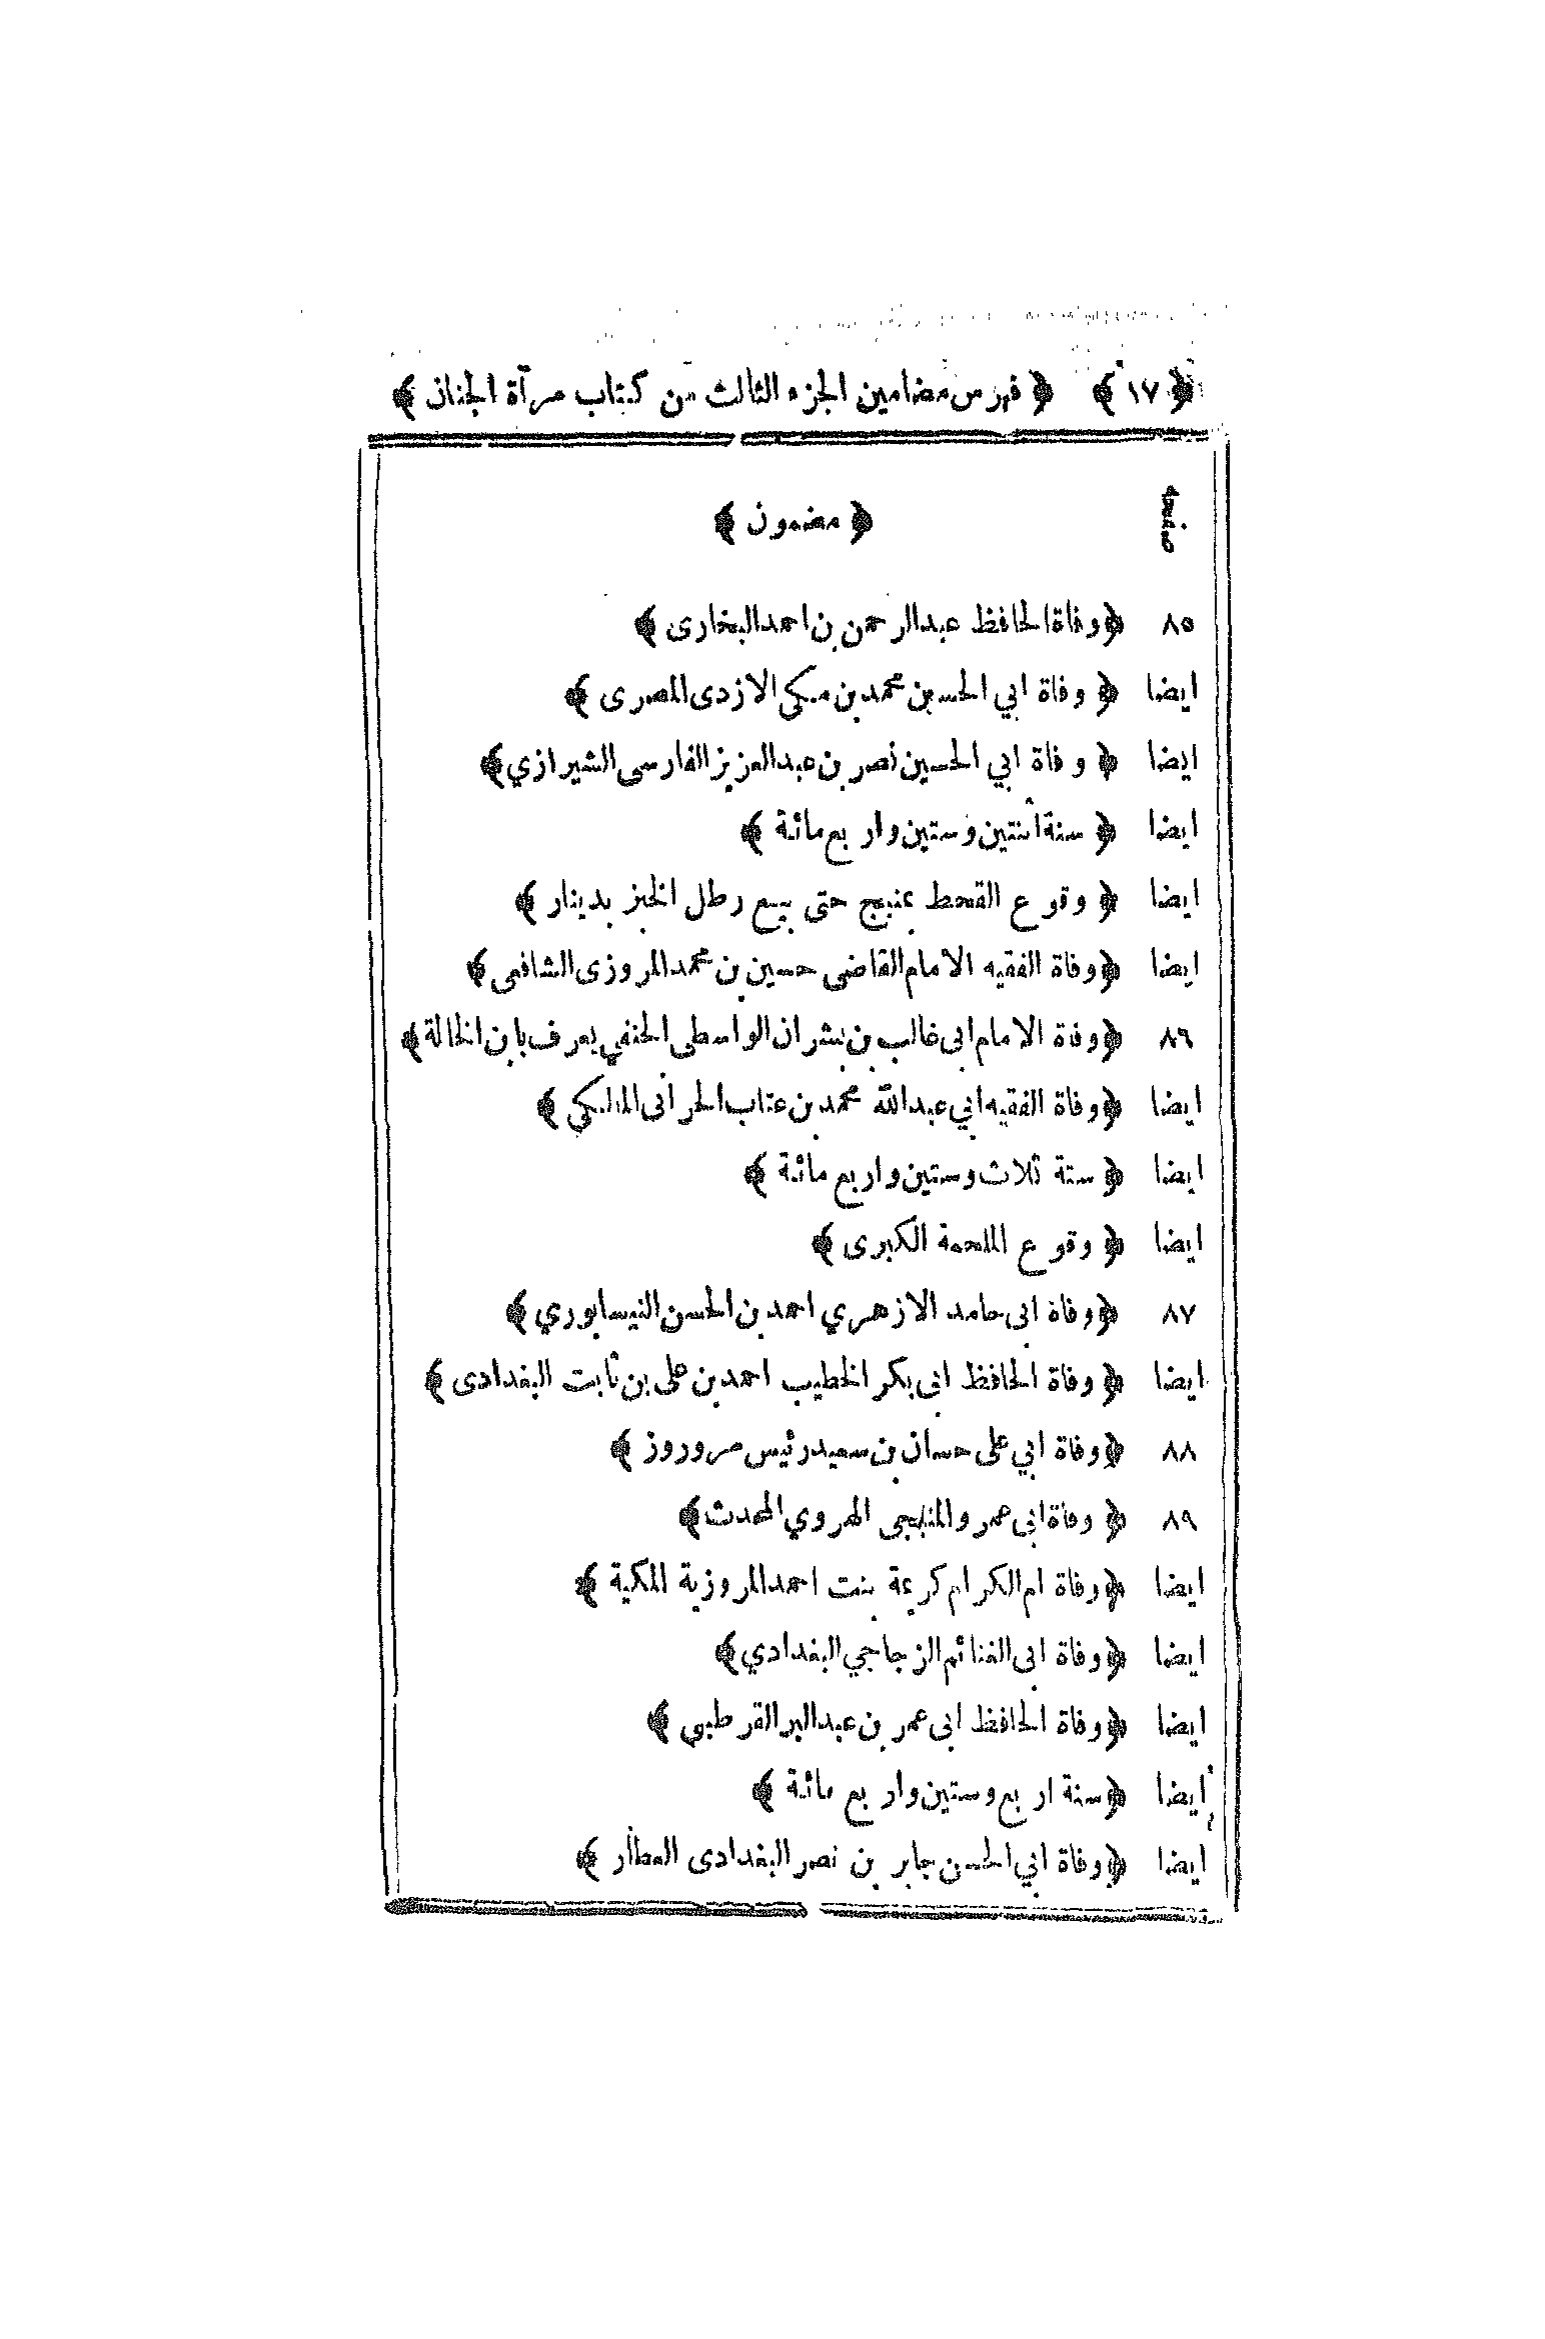 ﴿١٧﴾ ﴿ فهرس مضامين الجزء الثالث من كتاب مرآة الجنان ﴾
صفحة ﴿ مضمون ﴾
٨٥ ﴿ وفاة الحافظ عبد الرحمن بن احمد البخارى ﴾
ايضا ﴿ وفاة ابي الحسين محمد بن مكي الازدى المصرى ﴾
ايضا ﴿ وفاة ابي الحسين نصر بن عبد العزيز الفارسى الشيرازي ﴾
ايضا ﴿ سنة اثنتين وستين واربع مائة ﴾
ايضا ﴿ وقوع القحط بمنبج حتى بيع رطل الخبز بدينار ﴾
ايضا ﴿ وفاة الفقيه الامام القاضى حسين بن محمد المروزى الشافعى ﴾
٨٦ ﴿ وفاة الامام ابى غالب بن بشران الواسطى الحنفي يعرف بابن الخالة ﴾
ايضا ﴿ وفاة الفقيه ابي عبد الله محمد بن عتاب الحرانى المالكي ﴾
ايضا ﴿ ستة ثلاث وستين واربع مائة ﴾
ايضا ﴿ وقوع الملحمة الكبرى ﴾
٨٧ ﴿ وفاة ابى حامد الازهري احمد بن الحسن النيسابوري ﴾
ايضا ﴿ وفاة الحافظ ابى بكر الخطيب احمد بن على بن ثابت البغدادى ﴾
٨٨ ﴿ وفاة ابي على حسان بن سعيد رئيس مروروز ﴾
٨٩ ﴿ وفاة ابى عمر والمنيهجى الهروي المحدث ﴾
ايضا ﴿ وفاة ام الكرام كريمة بنت احمد المروزية المكية ﴾
ايضا ﴿ وفاة ابى الغنائم الزجاجي البغدادي ﴾
ايضا ﴿ وفاة الحافظ ابى عمر بن عبد البر القرطبي ﴾
ايضا ﴿ سنة اربع وستين واربع مائة ﴾
ايضا ﴿ وفاة ابي الحسن جابر بن نصر البغدادى العطار ﴾